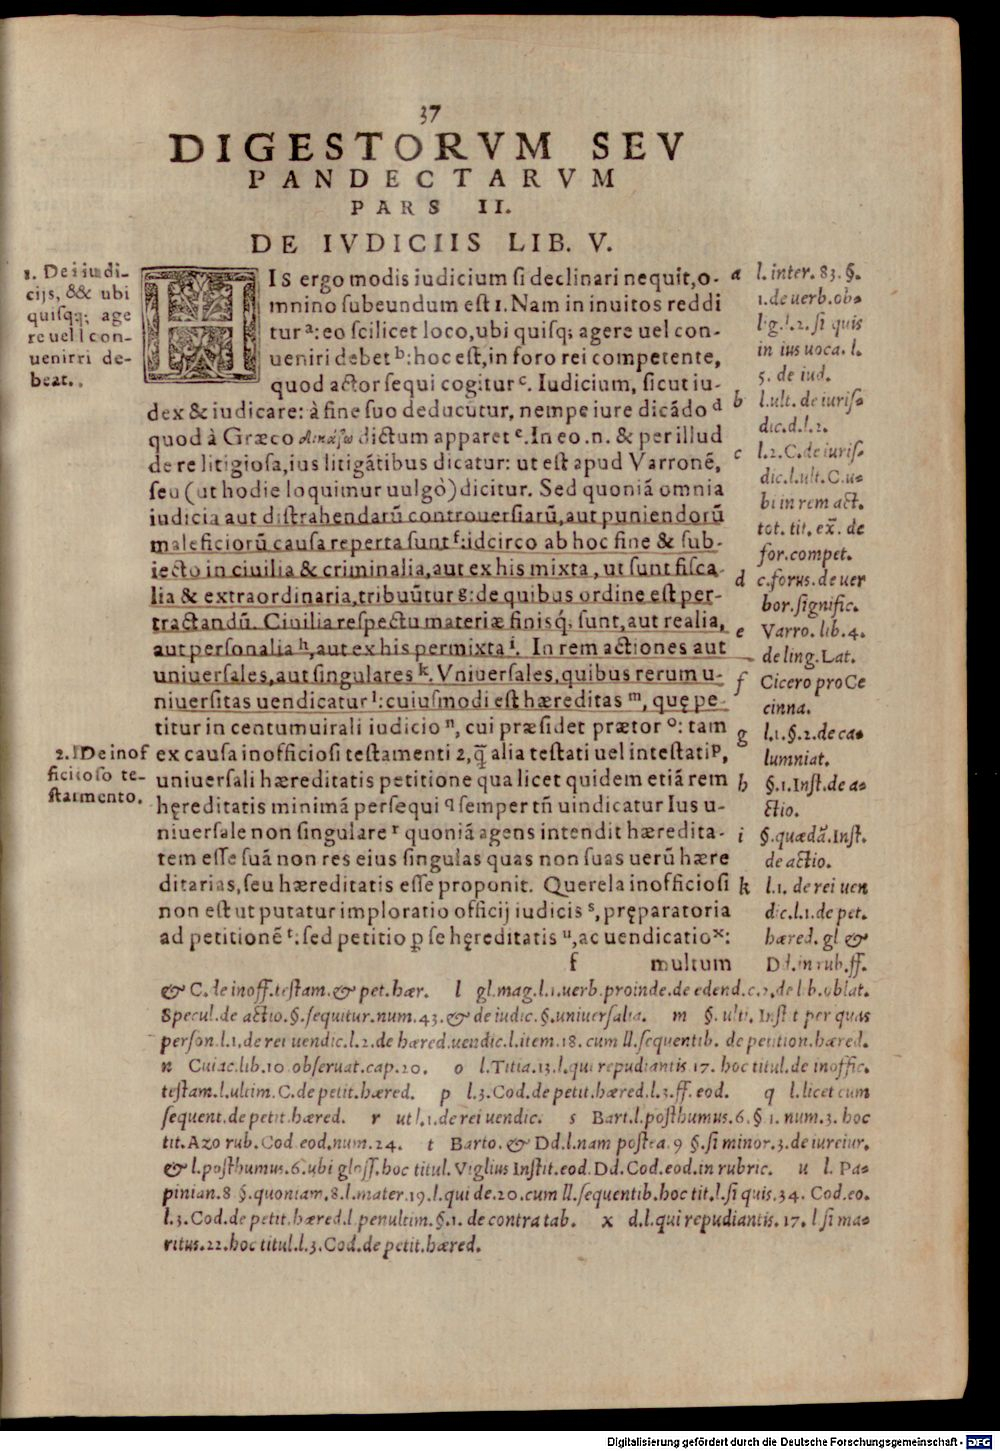 37
DIGESTORVM SEV
PANDECTARVM
PARS II.
DE IVDICIIS LIB. V.
1. De i iudi-
cijs, && ubi
quisqq; age
re uel l con-
uenirri de-
beat.
HIS ergo modis iudicium si declinari nequit, o-
mnino subeundum est 1. Nam in inuitos reddi
tur ᵃ: eo scilicet loco, ubi quisq; agere uel con-
ueniri debet ᵇ: hoc est, in foro rei competente,
quod actor sequi cogitur ᶜ. Iudicium, sicut iu-
dex & iudicare: à fine suo deducutur, nempe iure dicādo ᵈ
quod à Græco δικάζω dictum apparet ᵉ. In eo .n. & per illud
de re litigiosa, ius litigātibus dicatur: ut est apud Varronē,
seu (ut hodie loquimur uulgò) dicitur. Sed quoniā omnia
iudicia aut distrahendarū controuersiarū, aut puniendorū
maleficiorū causa reperta sunt ᶠ: idcirco ab hoc fine & sub-
iecto in ciuilia & criminalia, aut ex his mixta, ut sunt fisca-
lia & extraordinaria, tribuūtur g: de quibus ordine est per-
tractandū. Ciuilia respectu materiæ finisq́; sunt, aut realia,
aut personalia ʰ, aut ex his permixta ⁱ. In rem actiones aut
uniuersales, aut singulares ᵏ. Vniuersales, quibus rerum u-
niuersitas uendicatur ˡ: cuiusmodi est hæreditas ᵐ, quę pe-
titur in centumuirali iudicio ⁿ, cui præsidet prætor ᵒ: tam
2. IDe inof
ficitoso te-
statmento.
ex causa inofficiosi testamenti 2, q̄ alia testati uel intestati ᵖ,
uniuersali hæreditatis petitione qua licet quidem etiā rem
hęreditatis minimā persequi q semper tñ uindicatur Ius u-
niuersale non singulare ʳ quoniā agens intendit hæredita-
tem esse suā non res eius singulas quas non suas uerū hære
ditarias, seu hæreditatis esse proponit. Querela inofficiosi
non est ut putatur imploratio officij iudicis ˢ, pręparatoria
ad petitionē ᵗ: sed petitio ꝑ se hęreditatis ᵘ, ac uendicatio ˣ:
f multum
a l. inter. 83. §.
1. de uerb. ob-
lig. l. 2. si quis
in ius uoca. l.
5. de iud.
b l. ult. de iuris-
dic. d. l. 2.
c l. 2. C. de iuris-
dic. l. ult. C. u-
bi in rem act.
tot. tit. ex̄. de
for. compet.
d c. forus. de uer
bor. signific.
e Varro. lib. 4.
de ling. Lat.
f Cicero pro Ce
cinna.
g l. 1. §. 2. de ca-
lumniat.
h §. 1. Inst. de a-
ctio.
i §. quædā. Inst.
de actio.
k l. 1. de rei uen
dic. l. 1. de pet.
hæred. gl &
Dd. in rub. ff.
& C. de inoff. testam. & pet. hær. l gl. mag. l. 1. uerb. proinde. de edend. c. 2. de lib. oblat.
Specul. de actio. §. sequitur. num. 43. & de iudic. §. uniuersalia. m §. ulti. Inst t per quas
person. l. 1. de rei uendic. l. 2. de hæred. uendic. l. item. 18. cum ll. sequentib. de petition. hæred.
n Cuiac. lib. 10 obseruat. cap. 20. o l. Titia. 13. l. qui repudiantis 17. hoc titul. de inoffic.
testam. l. ultim. C. de petit. hæred. p l. 3. Cod. de petit. hæred. l. 3. ff. eod. q l. licet cum
sequent. de petit. hæred. r ut l. 1. de rei uendic. s Bart. l. posthumus. 6. § 1. num. 3. hoc
tit. Azo rub. Cod eod. num. 24. t Barto. & Dd. l. nam postea. 9 §. si minor. 3. de iureiur.
& l. posthumus. 6. ubi gloss. hoc titul. Viglius Instit. eod. Dd. Cod. eod. in rubric. u l. Pa-
pinian. 8 §. quoniam. 8. l. mater. 19. l. qui de. 20. cum ll. sequentib. hoc tit. l. si quis. 34. Cod. eo.
l. 3. Cod. de petit. hæred. l penultim. §. 1. de contra tab. x d. l. qui repudiantis. 17. l si ma-
ritus. 22. hoc titul. l. 3. Cod. de petit. hæred.
Digitalisierung gefördert durch die Deutsche Forschungsgemeinschaft - DFG